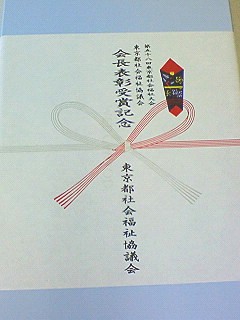 第五十八回東京都社会福祉大会
東京都社会福祉協議会
会長表彰受賞記念
東京都社会福祉協議会